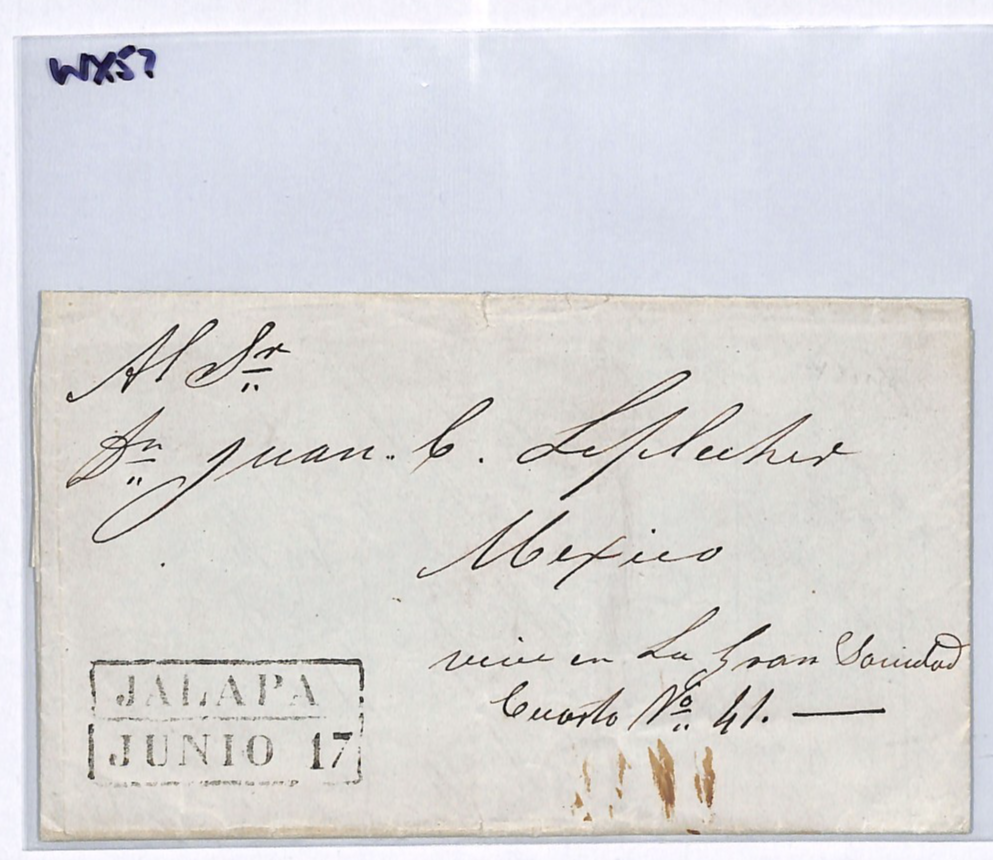 WX57
Al Sr
Dn Juan. C.
Mexico
vive en La Gran Sociedad
Cuarto No. 41. —
JALAPA
JUNIO 17